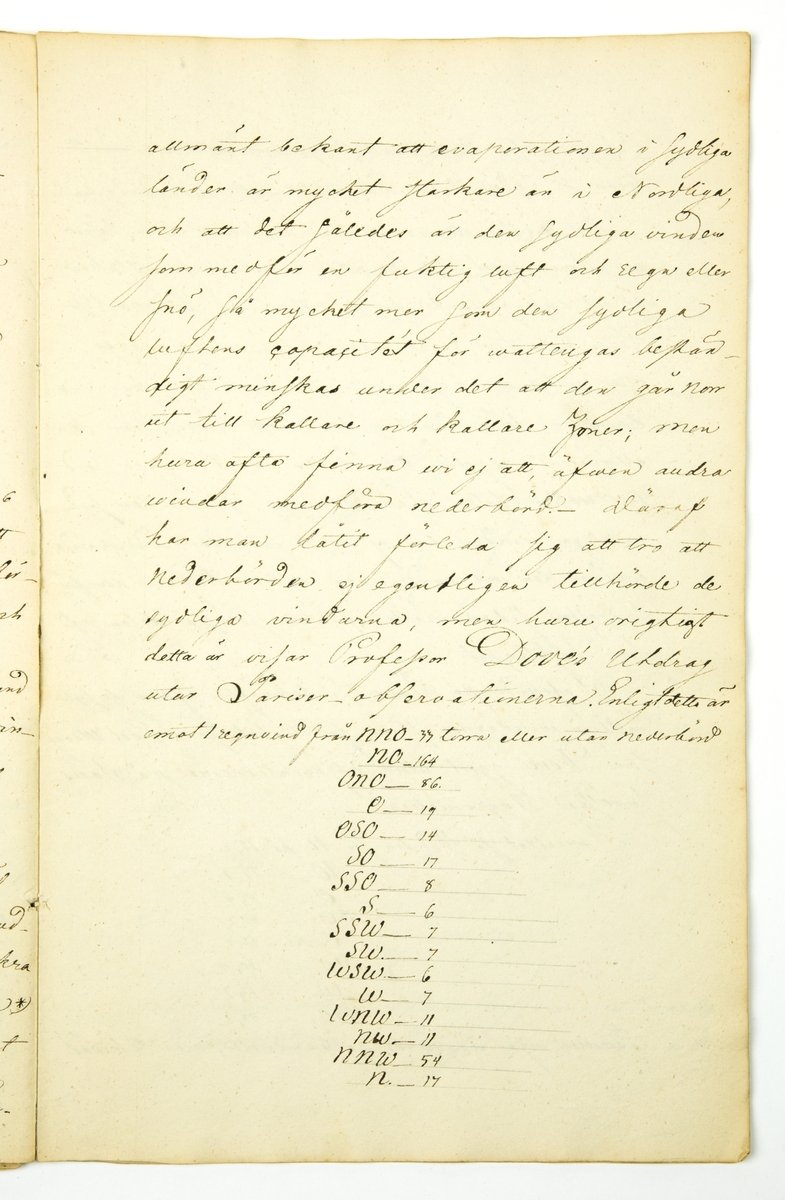 allmänt bekant att evaporationen i Sydliga
länder är mycket starkare än i Nordliga,
och att det således är den Sydliga vinden
som medför en fuktig luft och regn eller
snö, så mycket mer som den sydliga
luftens capacitét för wattengas bestän-
digt minskas under det att den går norr
ut till kallare och kallare Zoner; men
huru ofta finna wi ej att, äfwen andra
windar medföra nederbörd.- Däraf
har man låtit förleda sig att tro att
nederbörden ej egentligen tillhörde de
sydliga vindarna, men huru origtigt
detta är visar Professor Dove's Utdrag
utur Pariser-observationerna. Enligt detta är
emot 1 regnvind från NNO - 33 torra eller utan nederbörd
NO - 164
ONO - 86.
O - 19
OSO - 14
SO - 17
SSO - 8
S - 6
SSW - 7
SW. - 7
WSW - 6
W - 7
WNW - 11
NW. - 11
NNW - 54
N. - 17